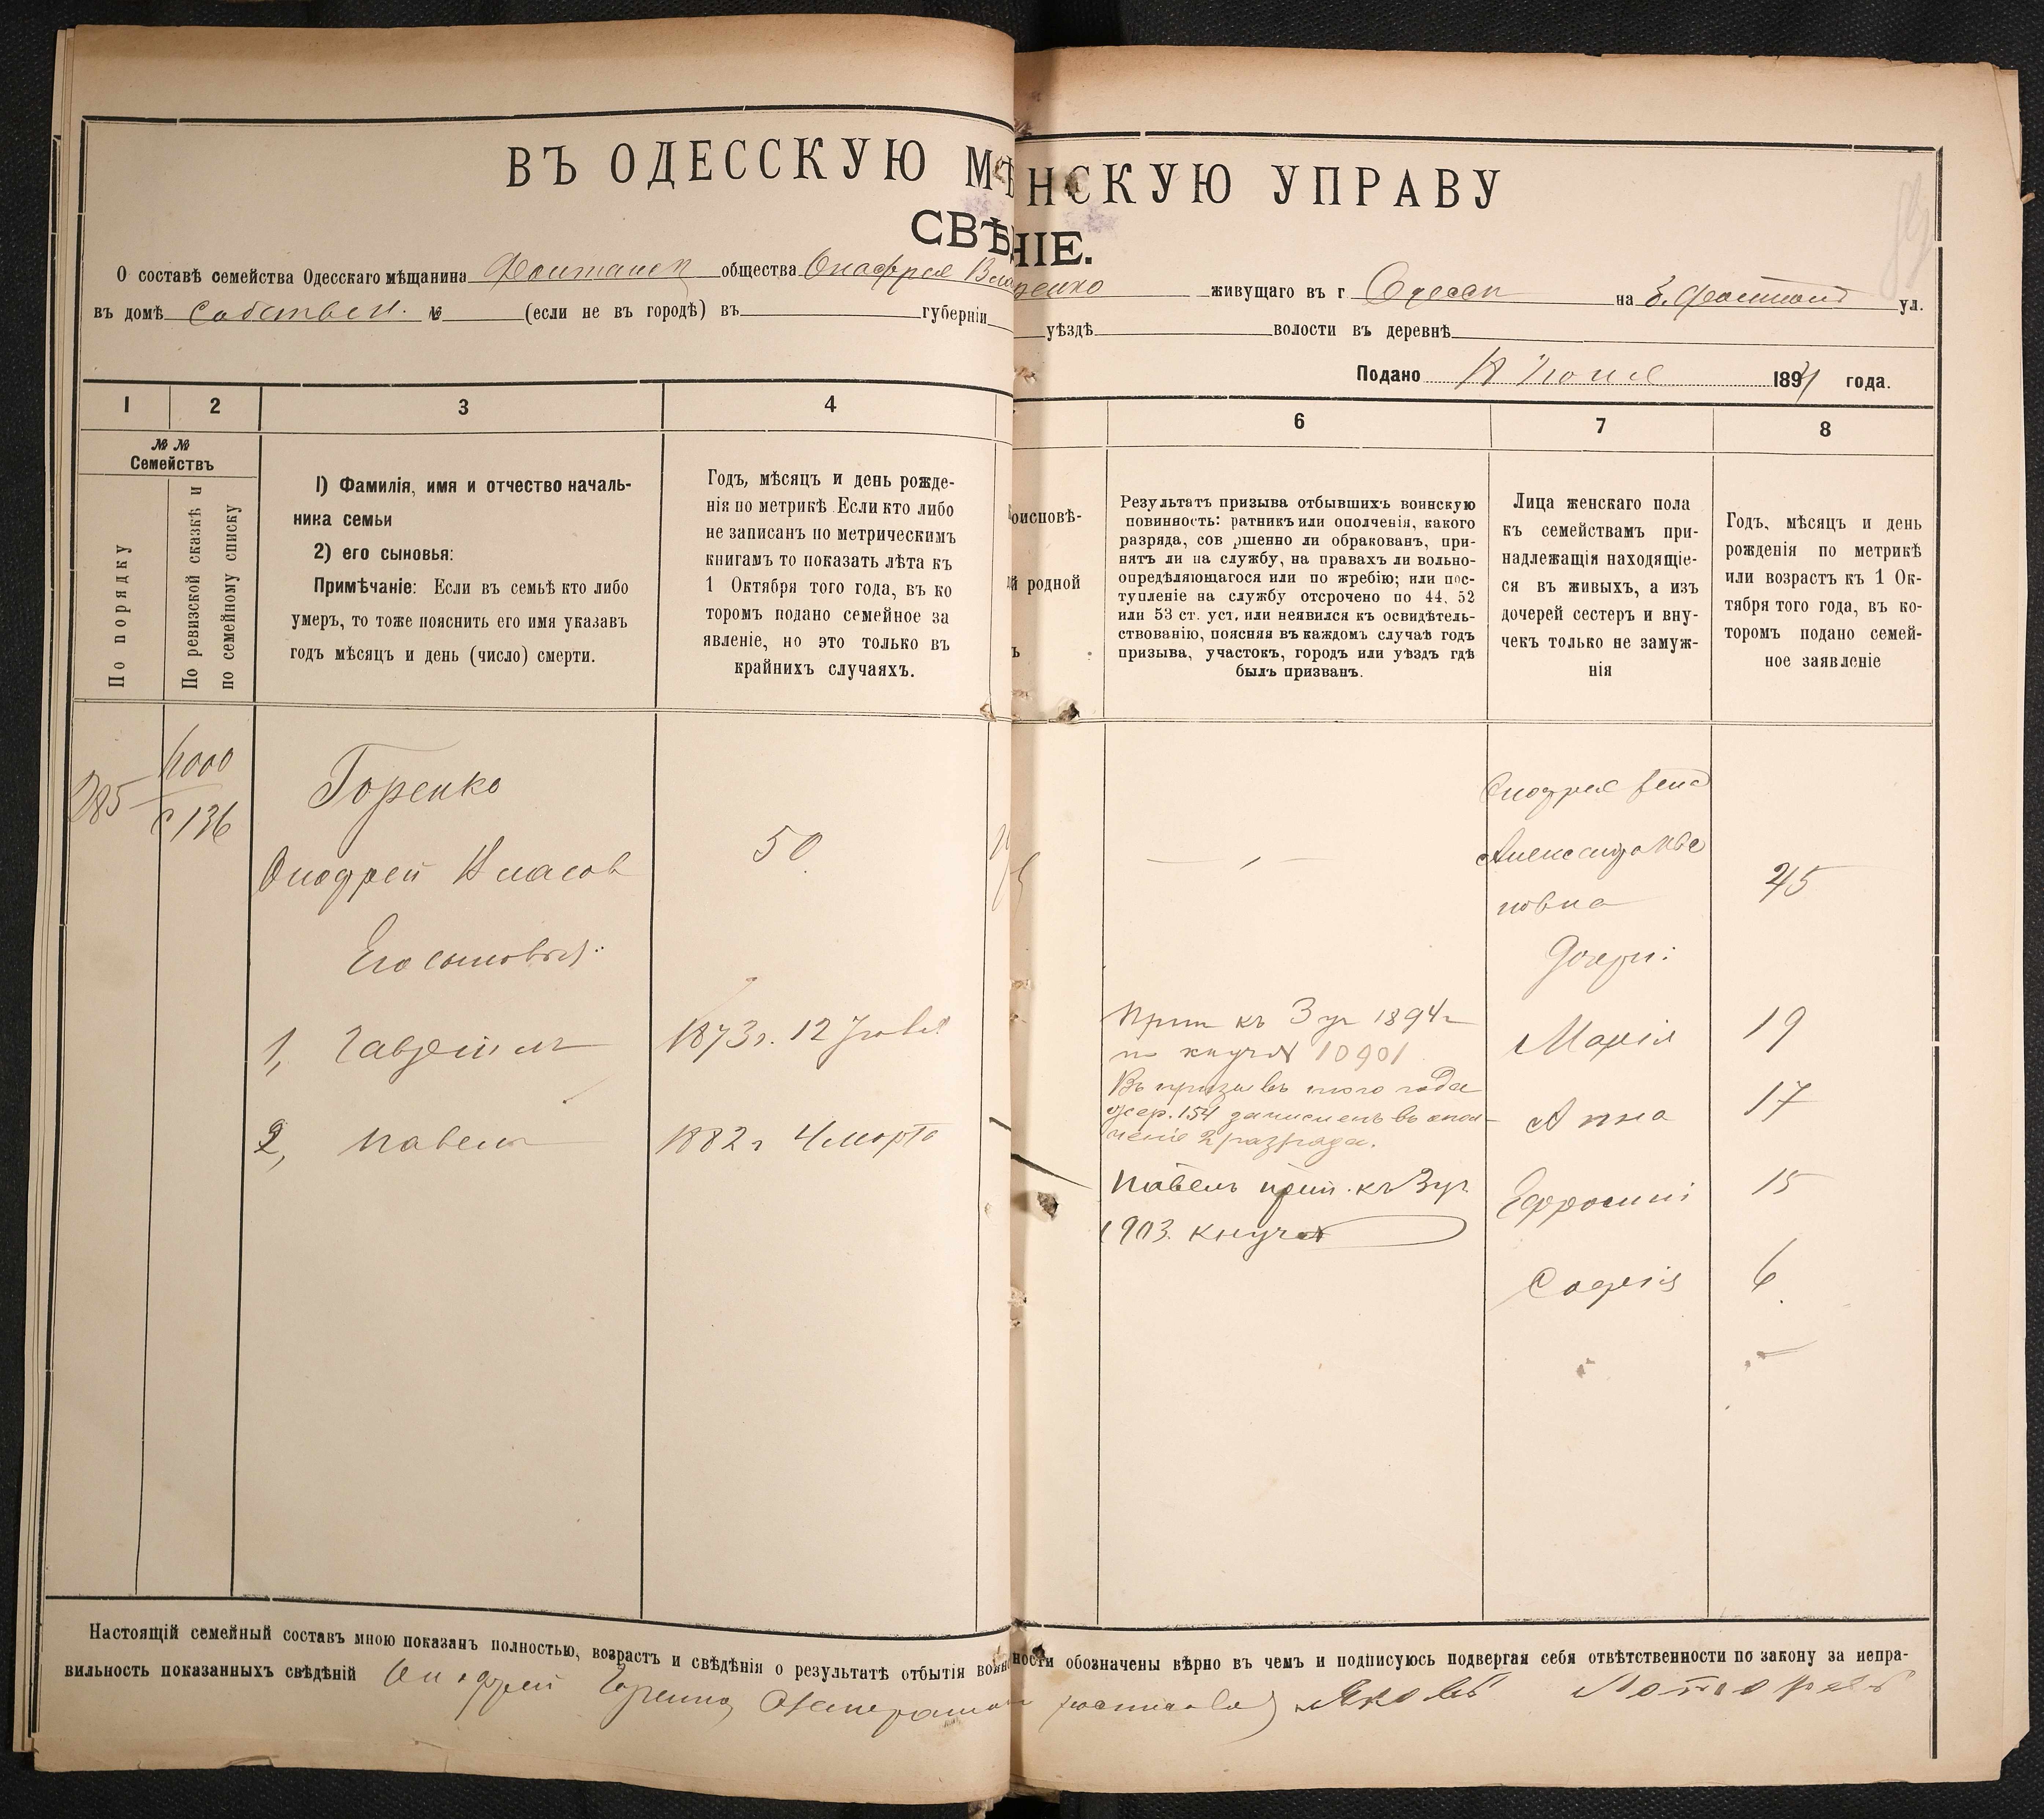 ВЪ ОДЕССКУЮ МѢ НСКУЮ УПРАВУ
СВѢ НІЕ.
О составѣ семейства Одесскаго мѣщанина общества Онофрея живущаго въ г Одессп на ул.
въ домѣ собствен. № (если не въ городѣ) въ губерніи уѣздѣ волости въ деревнѣ
Подано 189 года.
1 2 3 4 6 7 8
№ № Семействъ
По порядку
По ревизской сказкѣ и по семейному списку
1) Фамилія, имя и отчество началь-
ника семьи
2) его сыновья:
Примѣчаніе: Если въ семьѣ кто либо
умеръ, то тоже пояснить его имя указавъ
годъ мѣсяцъ и день (число) смерти.
Годъ, мѣсяцъ и день рожде-
нія по метрикѣ Если кто либо
не записан по метрическимъ
книгамъ то показать лѣта къ
1 Октября того года, въ ко
торомъ подано семейное за
явленіе, но это только въ
крайнихъ случаяхъ.
оисповѣ-
й родной
ъ
Результатъ призыва отбывшихъ воинскую
повинность: ратникъ или ополченія, какого
разряда, сов ршенно ли обракованъ, при-
нятъ ли на службу, на правахъ ли вольно-
опредѣляющагося или по жребію; или пос-
тупленіе на службу отсрочено по 44, 52
или 53 ст. уст, или неявился къ освидѣтель-
ствованію, поясняя въ каждомъ случаѣ годъ
призыва, участокъ, городъ или уѣздъ гдѣ
былъ призванъ.
Лица женскаго пола
къ семействамъ при-
надлежащія находящіе-
ся въ живыхъ, а изъ
дочерей сестеръ и вну-
чекъ только не замуж-
нія
Годъ, мѣсяцъ и день
рожденія по метрикѣ
или возрастъ къ 1 Ок-
тября того года, въ ко-
торомъ подано семей-
ное заявленіе
285
136
Горенко
Онофрей Власов
50
Его сыновья:
1, Гавріилъ
1873г. 12 Іюля
2, Павелъ
1882 г 4 марта
Прип къ 3 уч 1894 г
10901
Въ призывъ того года
жер. 154 зачисленъ въ опол-
ченіе 2 разряда.
Павелъ прип. къ 3 уч.
1903.
Онофрея жена
Александра
45
Дочери:
Марія 19
Анна 17
Ефросині 15
Софія 6
Настоящій семейный составъ мною показанъ полностью, возрастъ и свѣдѣнія о результатѣ отбытія воин ности обозначены вѣрно въ чемъ и подписуюсь подвергая себя отвѣтственности по закону за непра-
вильность показанныхъ свѣдѣній Онофрей Горенко Яковъ